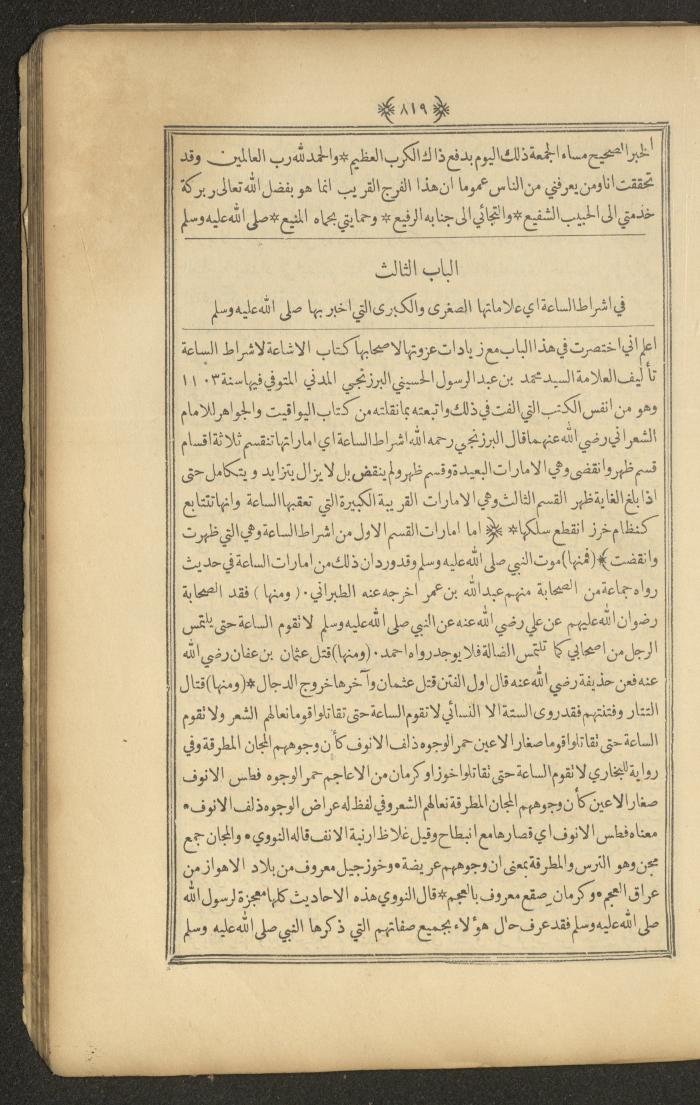 ٨١٩
الخبر الصحيح مساء الجمعة ذلك اليوم بدفع ذاك الكرب العظيم * والحمد لله رب العالمين وقد
تحققت انا ومن يعرفني من الناس عموما ان هذا الفرج القريب انما هو بفضل الله تعالى ربركة
خدمتي الى الحبيب الشفيع * والتجائي الى جنابه الرفيع * وحمايتي بحماه المنيع * صلى الله عليه وسلم
الباب الثالث
في اشراط الساعة اي علاماتها الصغرى والكبرى التي اخبر بها صلى الله عليه وسلم
اعلم اني اختصرت في هذا الباب مع زيادات عزوتها لاصحابها كتاب الاشاعة لاشراط الساعة
تأليف العلامة السيد محمد بن عبد الرسول الحسيني البرزنجي المدني المتوفي فيها سنة ١١٠٣
وهو من انفس الكتب التي الفت في ذلك واتبعته بما نقلته من كتاب اليواقيت والجواهر للامام
الشعراني رضي الله عنهما قال البرزنجي رحمه الله اشراط الساعة اي اماراتها تنقسم ثلاثة اقسام
قسم ظهر وانقضى وهي الامارات البعيدة وقسم ظهر ولم ينقض بل لا يزال يتزايد و يتكامل حتى
اذا بلغ الغاية ظهر القسم الثالث وهي الامارات القريبة الكبيرة التي تعقبها الساعة وانها تتتابع
كنظام خرز انقطع سلكها * ﴿ اما امارات القسم الاول من اشراط الساعة وهي التي ظهرت
وانقضت ﴾ (فمنها) موت النبي صلى الله عليه وسلم وقد ورد ان ذلك من امارات الساعة في حديث
رواه جماعة من الصحابة منهم عبد الله بن عمر اخرجه عنه الطبراني. (ومنها) فقد الصحابة
رضوان الله عليهم عن علي رضي الله عنه عن النبي صلى الله عليه وسلم لا تقوم الساعة حتى يلتمس
الرجل من اصحابي كما تلتمس الضالة فلا يوجد رواه احمد. (ومنها) قتل عثمان بن عفان رضي الله
عنه فعن حذيفة رضي الله عنه قال اول الفتن قتل عثمان وآخرها خروج الدجال * (ومنها) قتال
التتار وفتنتهم فقد روى الستة الا النسائي لا تقوم الساعة حتى تقاتلوا قوما نعالهم الشعر ولا تقوم
الساعة حتى تقاتلوا قوما صغار الاعين حمر الوجوه ذلف الانوف كأن وجوههم المجان المطرقة وفي
رواية للبخاري لا تقوم الساعة حتى تقاتلوا خوزا وكرمان من الاعاجم حمر الوجوه فطس الانوف
صغار الاعين كأن وجوههم المجان المطرقة نعالهم الشعر وفي لفظ له عراض الوجوه ذلف الانوف *
معناه فطس الانوف اي قصارها مع انبطاح وقيل غلاظ ارنبة الانف قاله النووي * والمجان جمع
مجن وهو الترس والمطرقة بمعنى ان وجوههم عريضة * وخوز جيل معروف من بلاد الاهواز من
عراق العجم * وكرمان صقع معروف بالعجم * قال النووي هذه الاحاديث كلها معجزة لرسول الله
صلى الله عليه وسلم فقد عرف حال هؤلاء بجميع صفاتهم التي ذكرها النبي صلى الله عليه وسلم